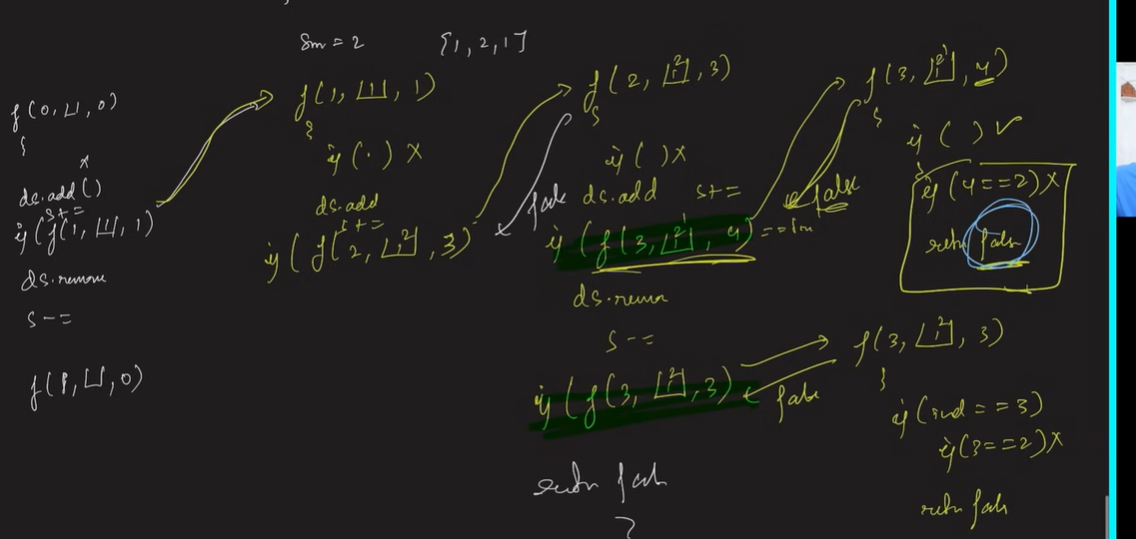 Sm = 2 [1, 2, 1]
f(0, ⊔, 0)
{
ds.add()
s+=
if (f(1, ⊔, 1)
ds.remove
s-=
f(1, ⊔, 0)
f(1, 1, 1)
{
if (.) x
ds.add
s+=
if (f(2, 1 2, 3)
f(2, 1 2, 3)
{
if ( ) x
false ds.add s+=
if (f(3, 1 2 1, 4) ==
ds.remo
s-=
if (f(3, 1 2, 3) false
retn fals
}
f(3, 1 2 1, 4)
{
false
if ( ) ✓
{
if (4==2) x
retn fals
f(3, 1 2, 3)
{
if (ind == 3)
if (3==2) x
retn fals